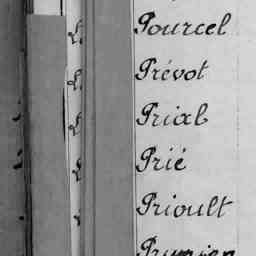 Pourcel
Prévot
Prial
Prié
Prioult